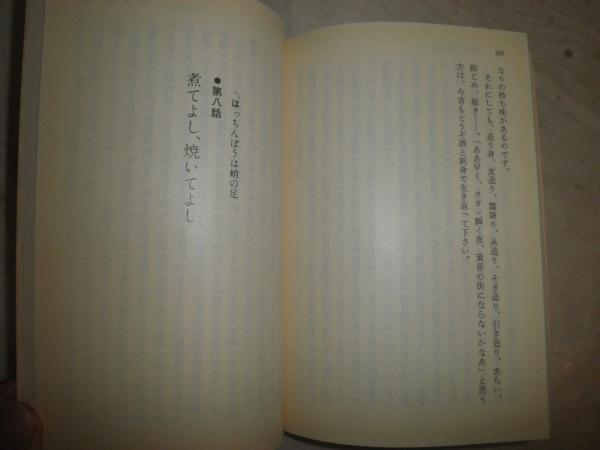 196
なりの持ち味があるのです。
それにしても、造り身、皮造り、霜降り、糸造り、そぎ造り、引き造り、あらい、
酢じめ、敲き……。「ああ早く、ネオン瞬く夜、黄昏の街にならないかなあ」と思う
方は、今宵もどうぞ酒と刺身で生き返って下さい。
●第八話
煮てよし、焼いてよし
〽はっちんぼうは蛸の足